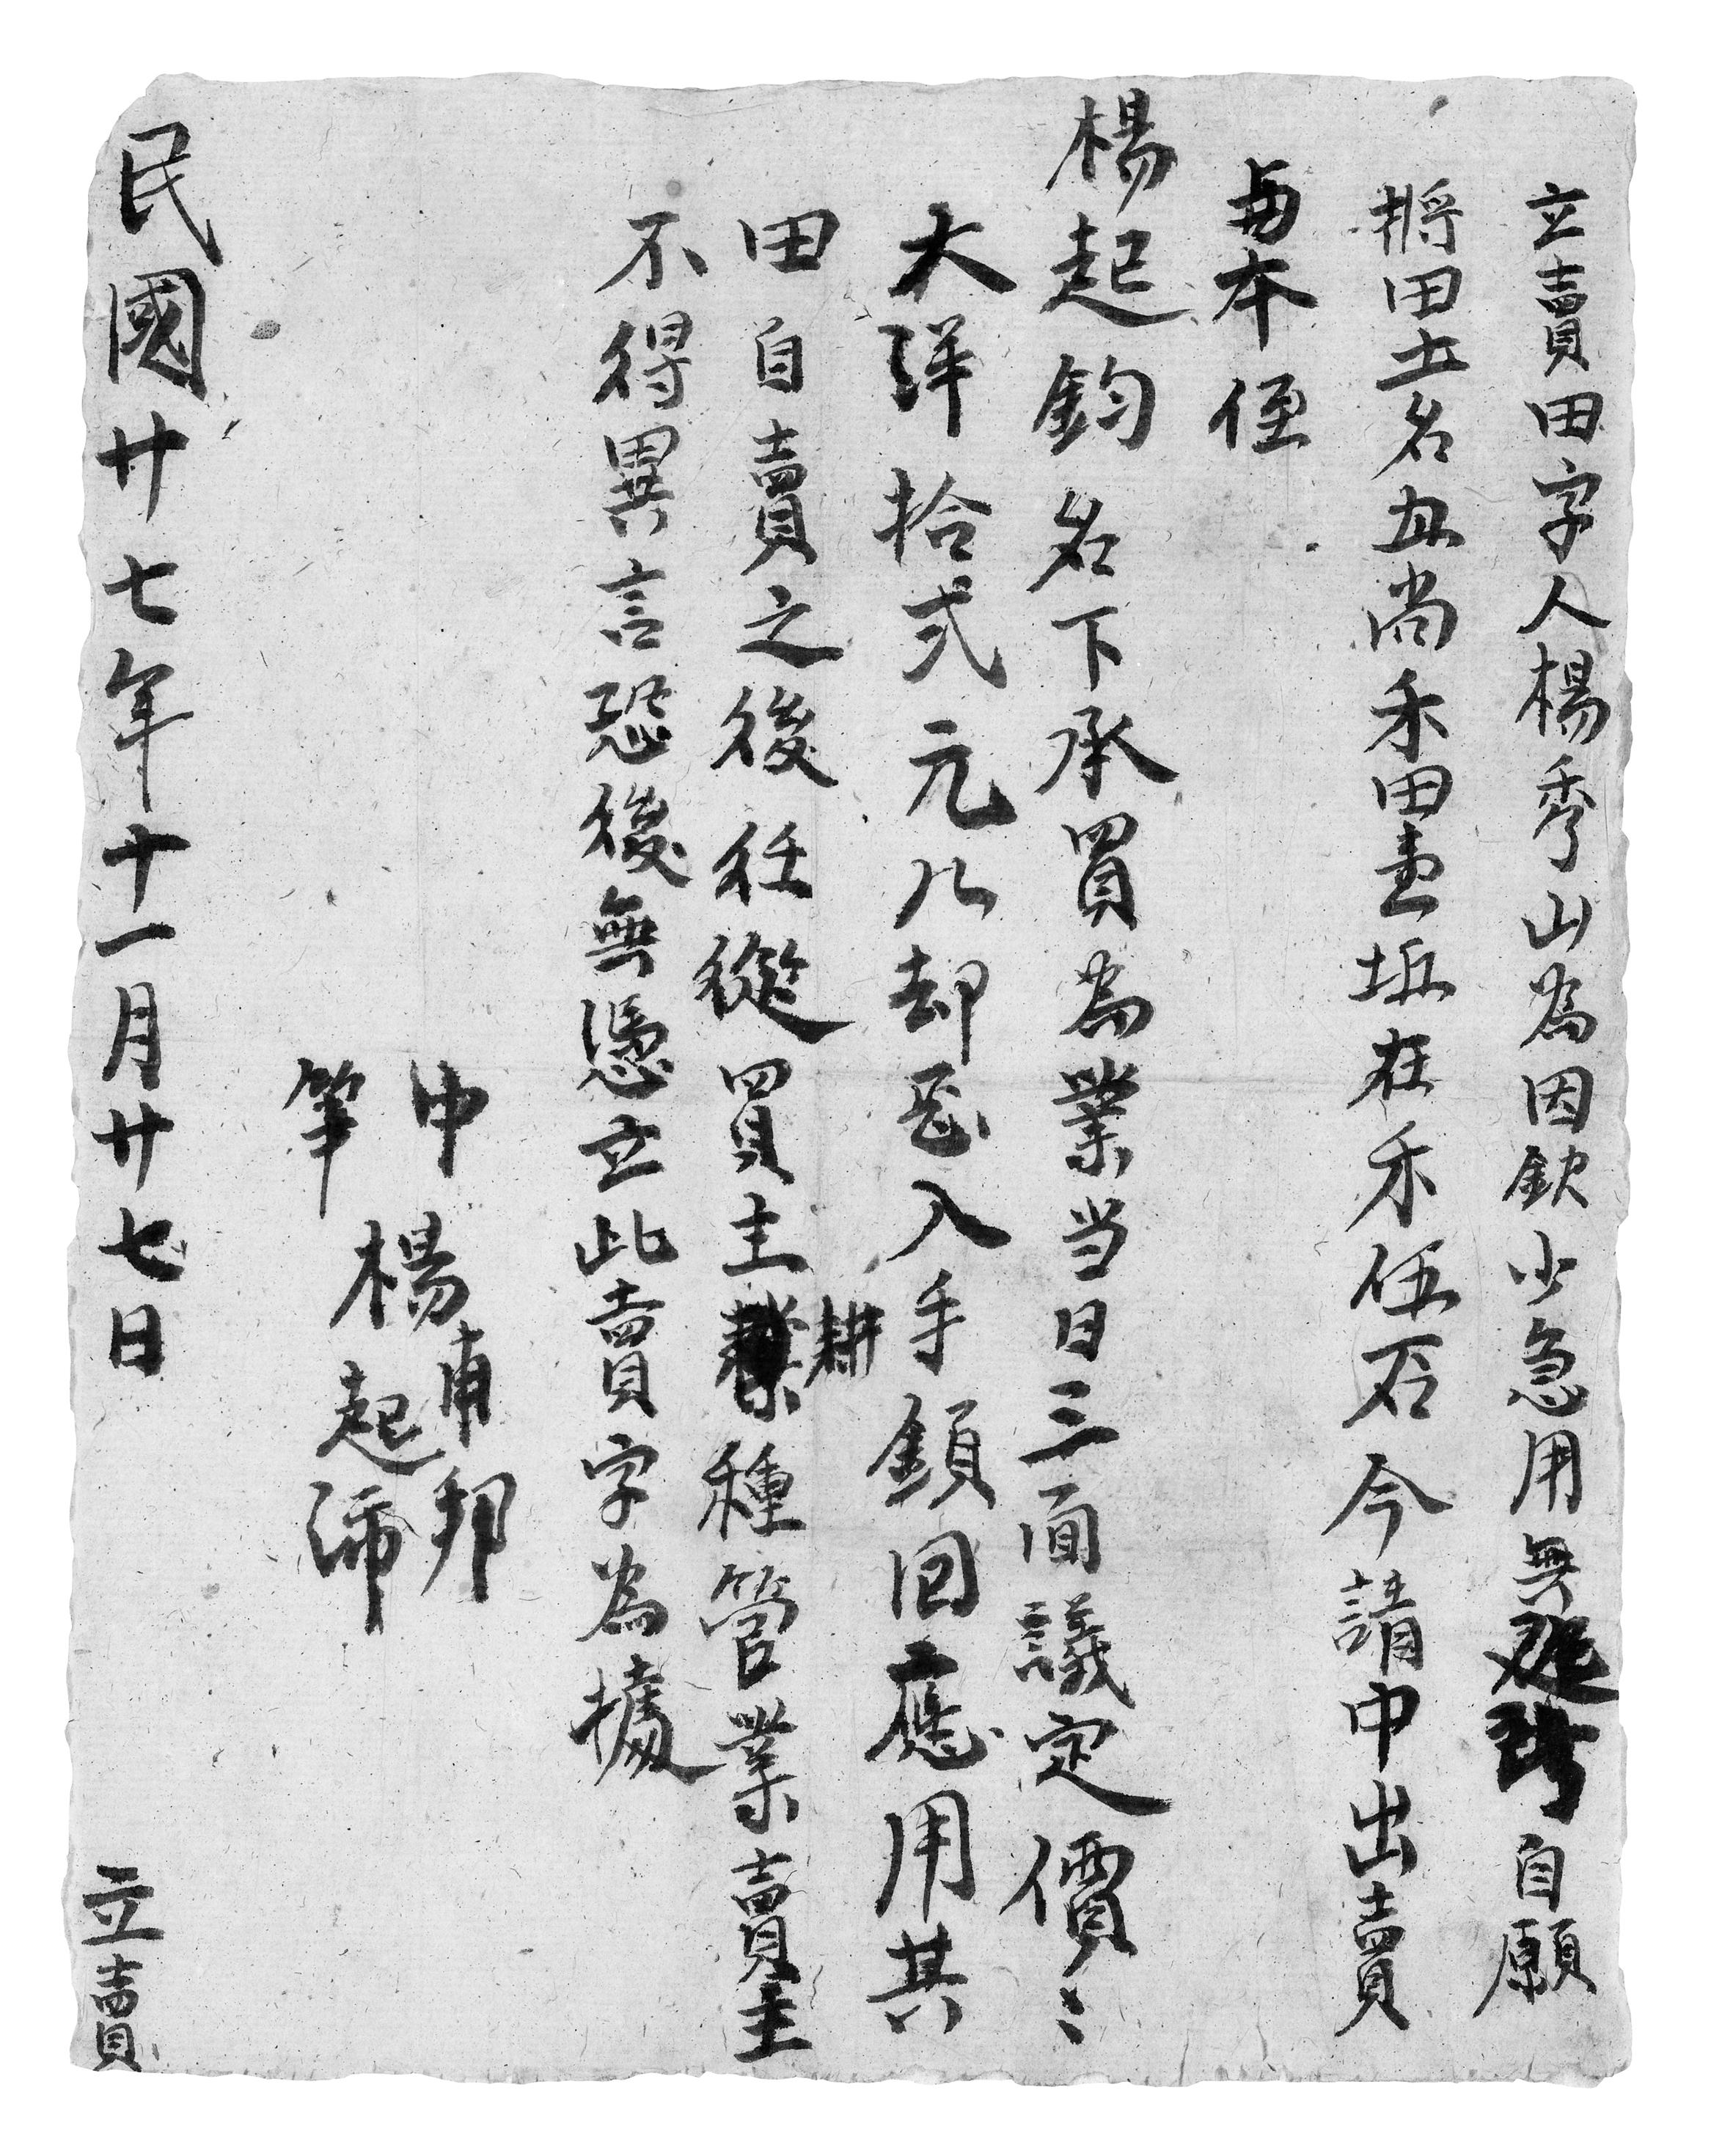 立賣田字人楊秀山為因欽少急用無 自願
將田土名丑尚禾田壹坵在禾伍石今請中出賣
与本侄
楊起鈞名下承買為業当日三面議定價〻
大洋拾弍元八却艮入手領回應用其
田自賣之後任從買主耕種管業賣主
不得異言恐後無憑立此賣字為據
中 楊甫邦
筆 起沛
民國廿七年十一月廿七日 立賣